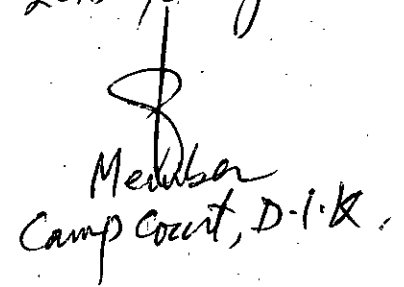 Member
Camp Court, D.I.K.